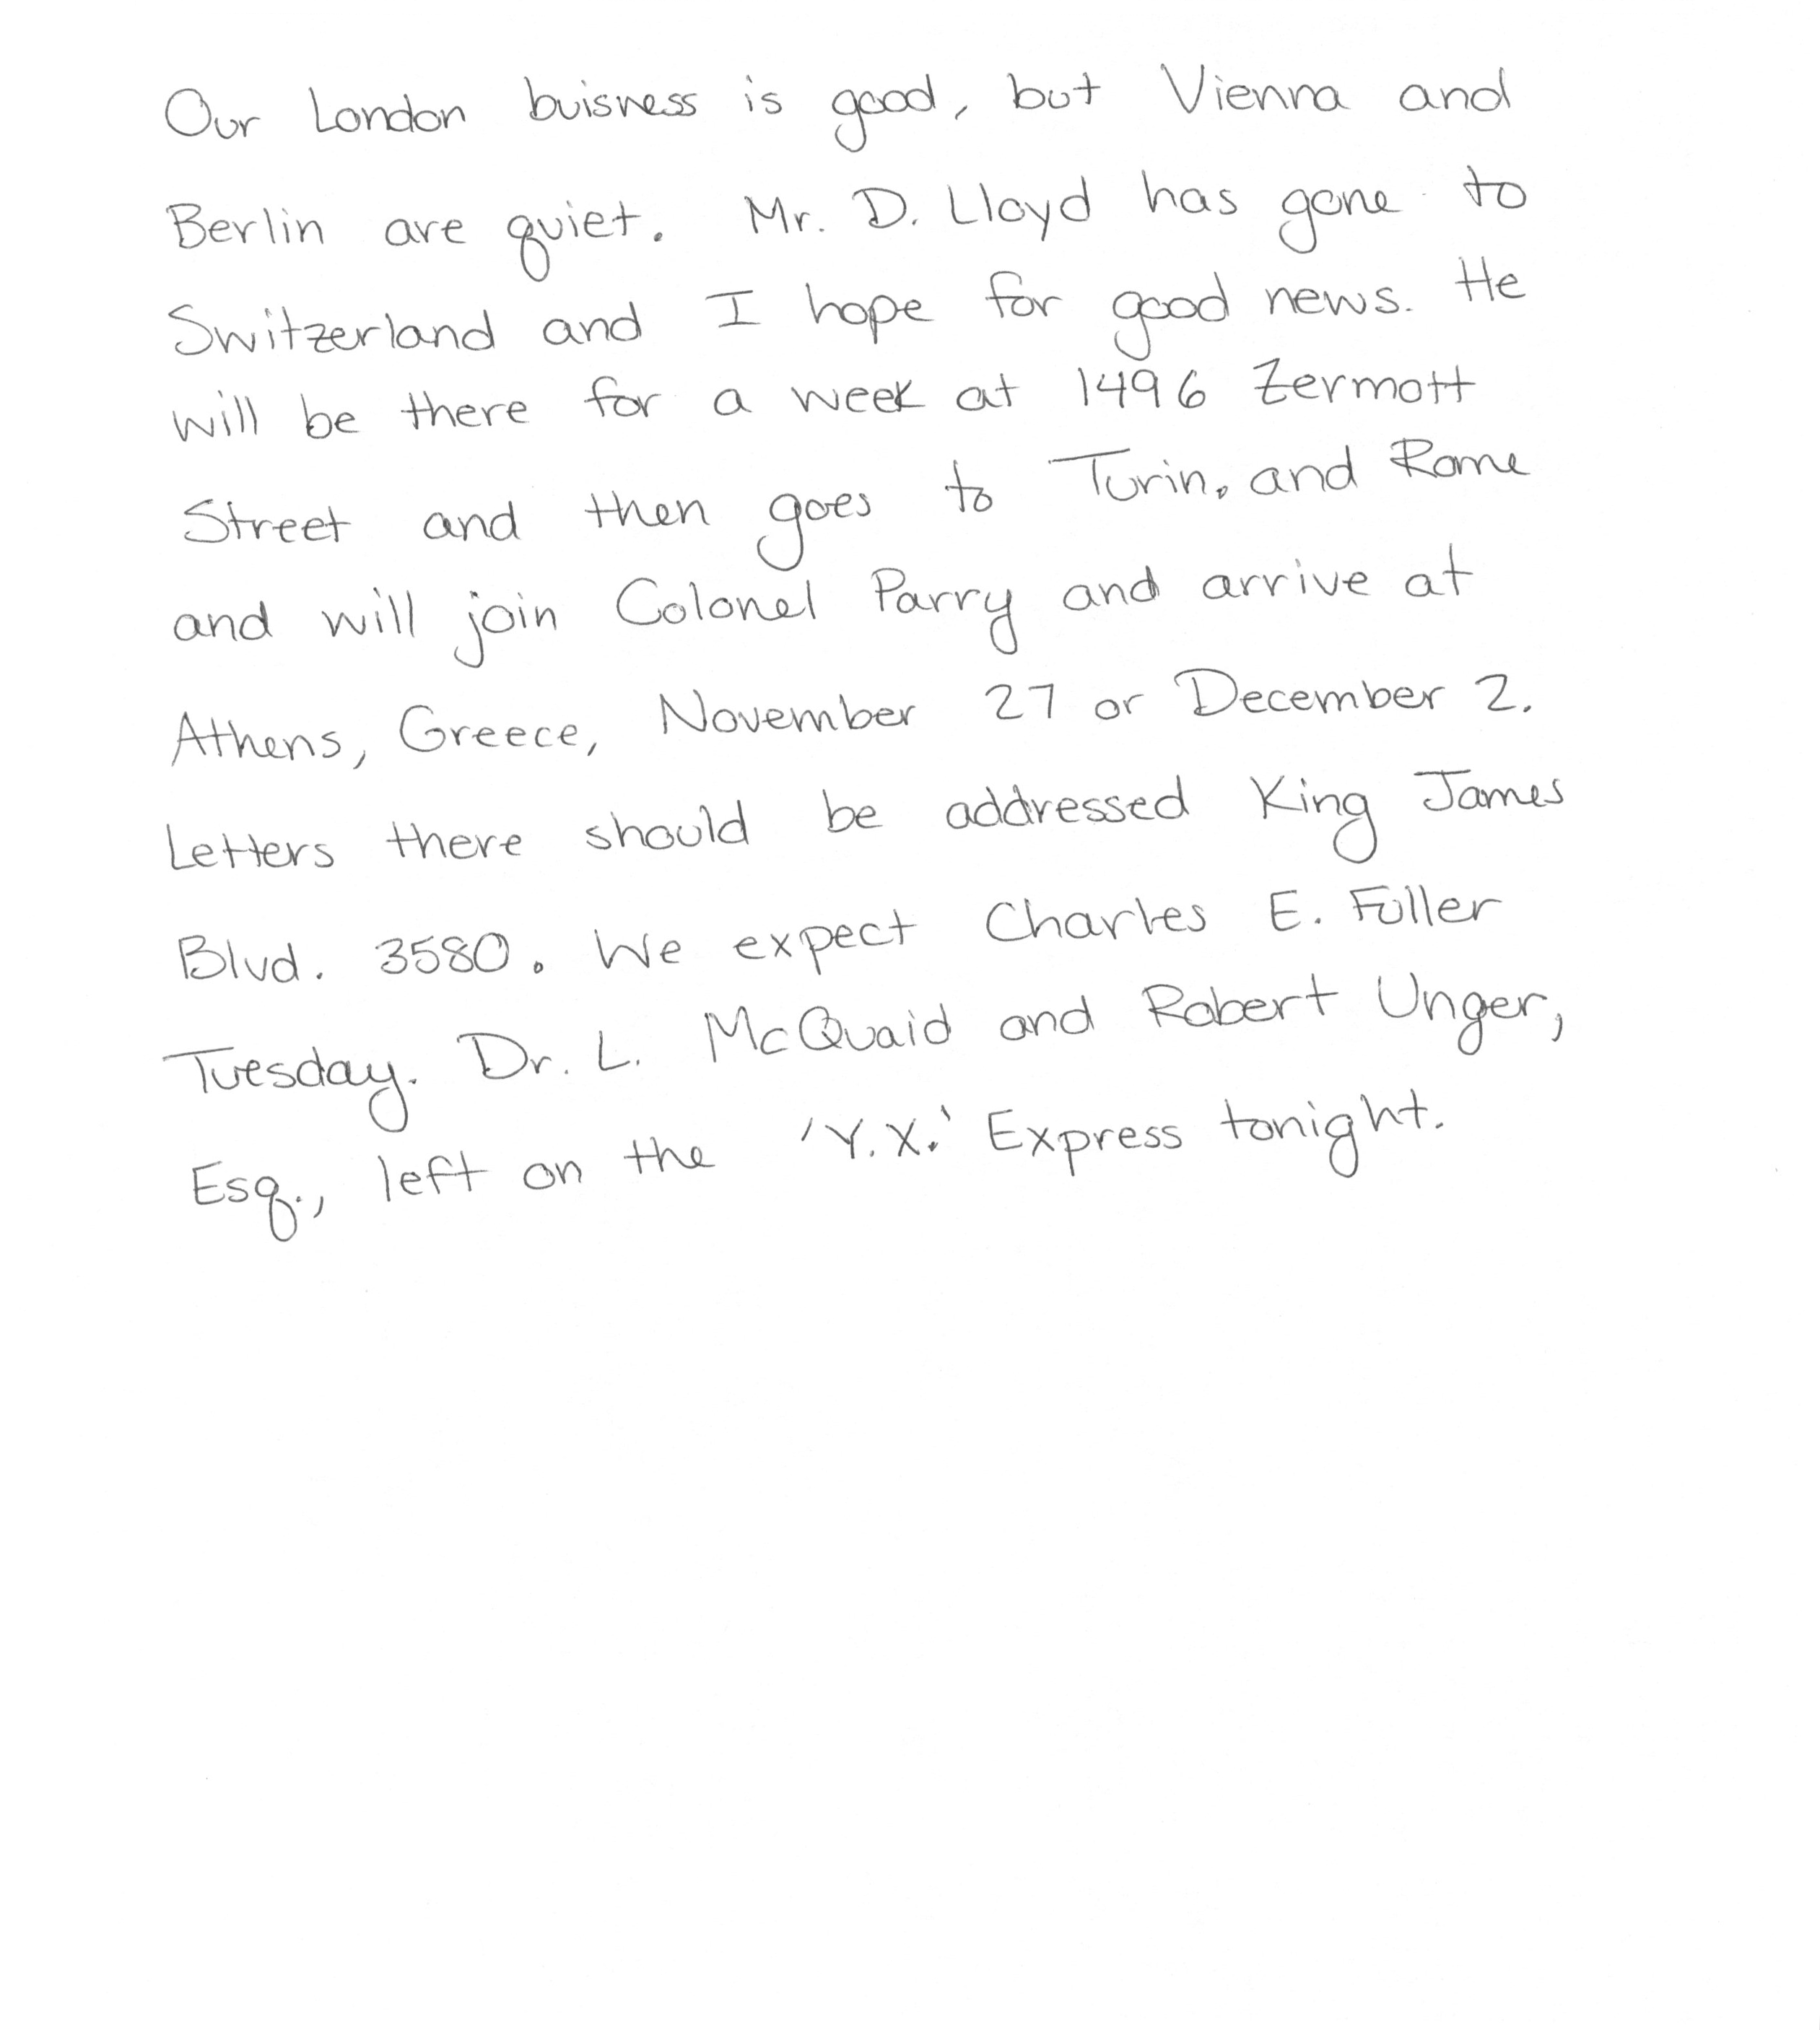 Our London buisness is good, but Vienna and
Berlin are quiet. Mr. D. Lloyd has gone to
Switzerland and I hope for good news. He
will be there for a week at 1496 Zermott
Street and then goes to Turin, and Rome
and will join Colonel Parry and arrive at
Athens, Greece, November 27 or December 2.
Letters there should be addressed King James
Blvd. 3580. We expect Charles E. Fuller
Tuesday. Dr. L. McQuaid and Robert Unger,
Esq., left on the 'Y.X.' Express tonight.